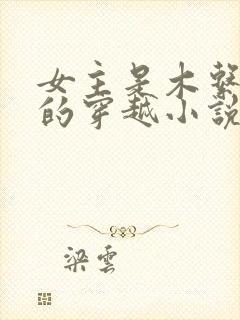 女主是木系
的穿越小說
梁雲